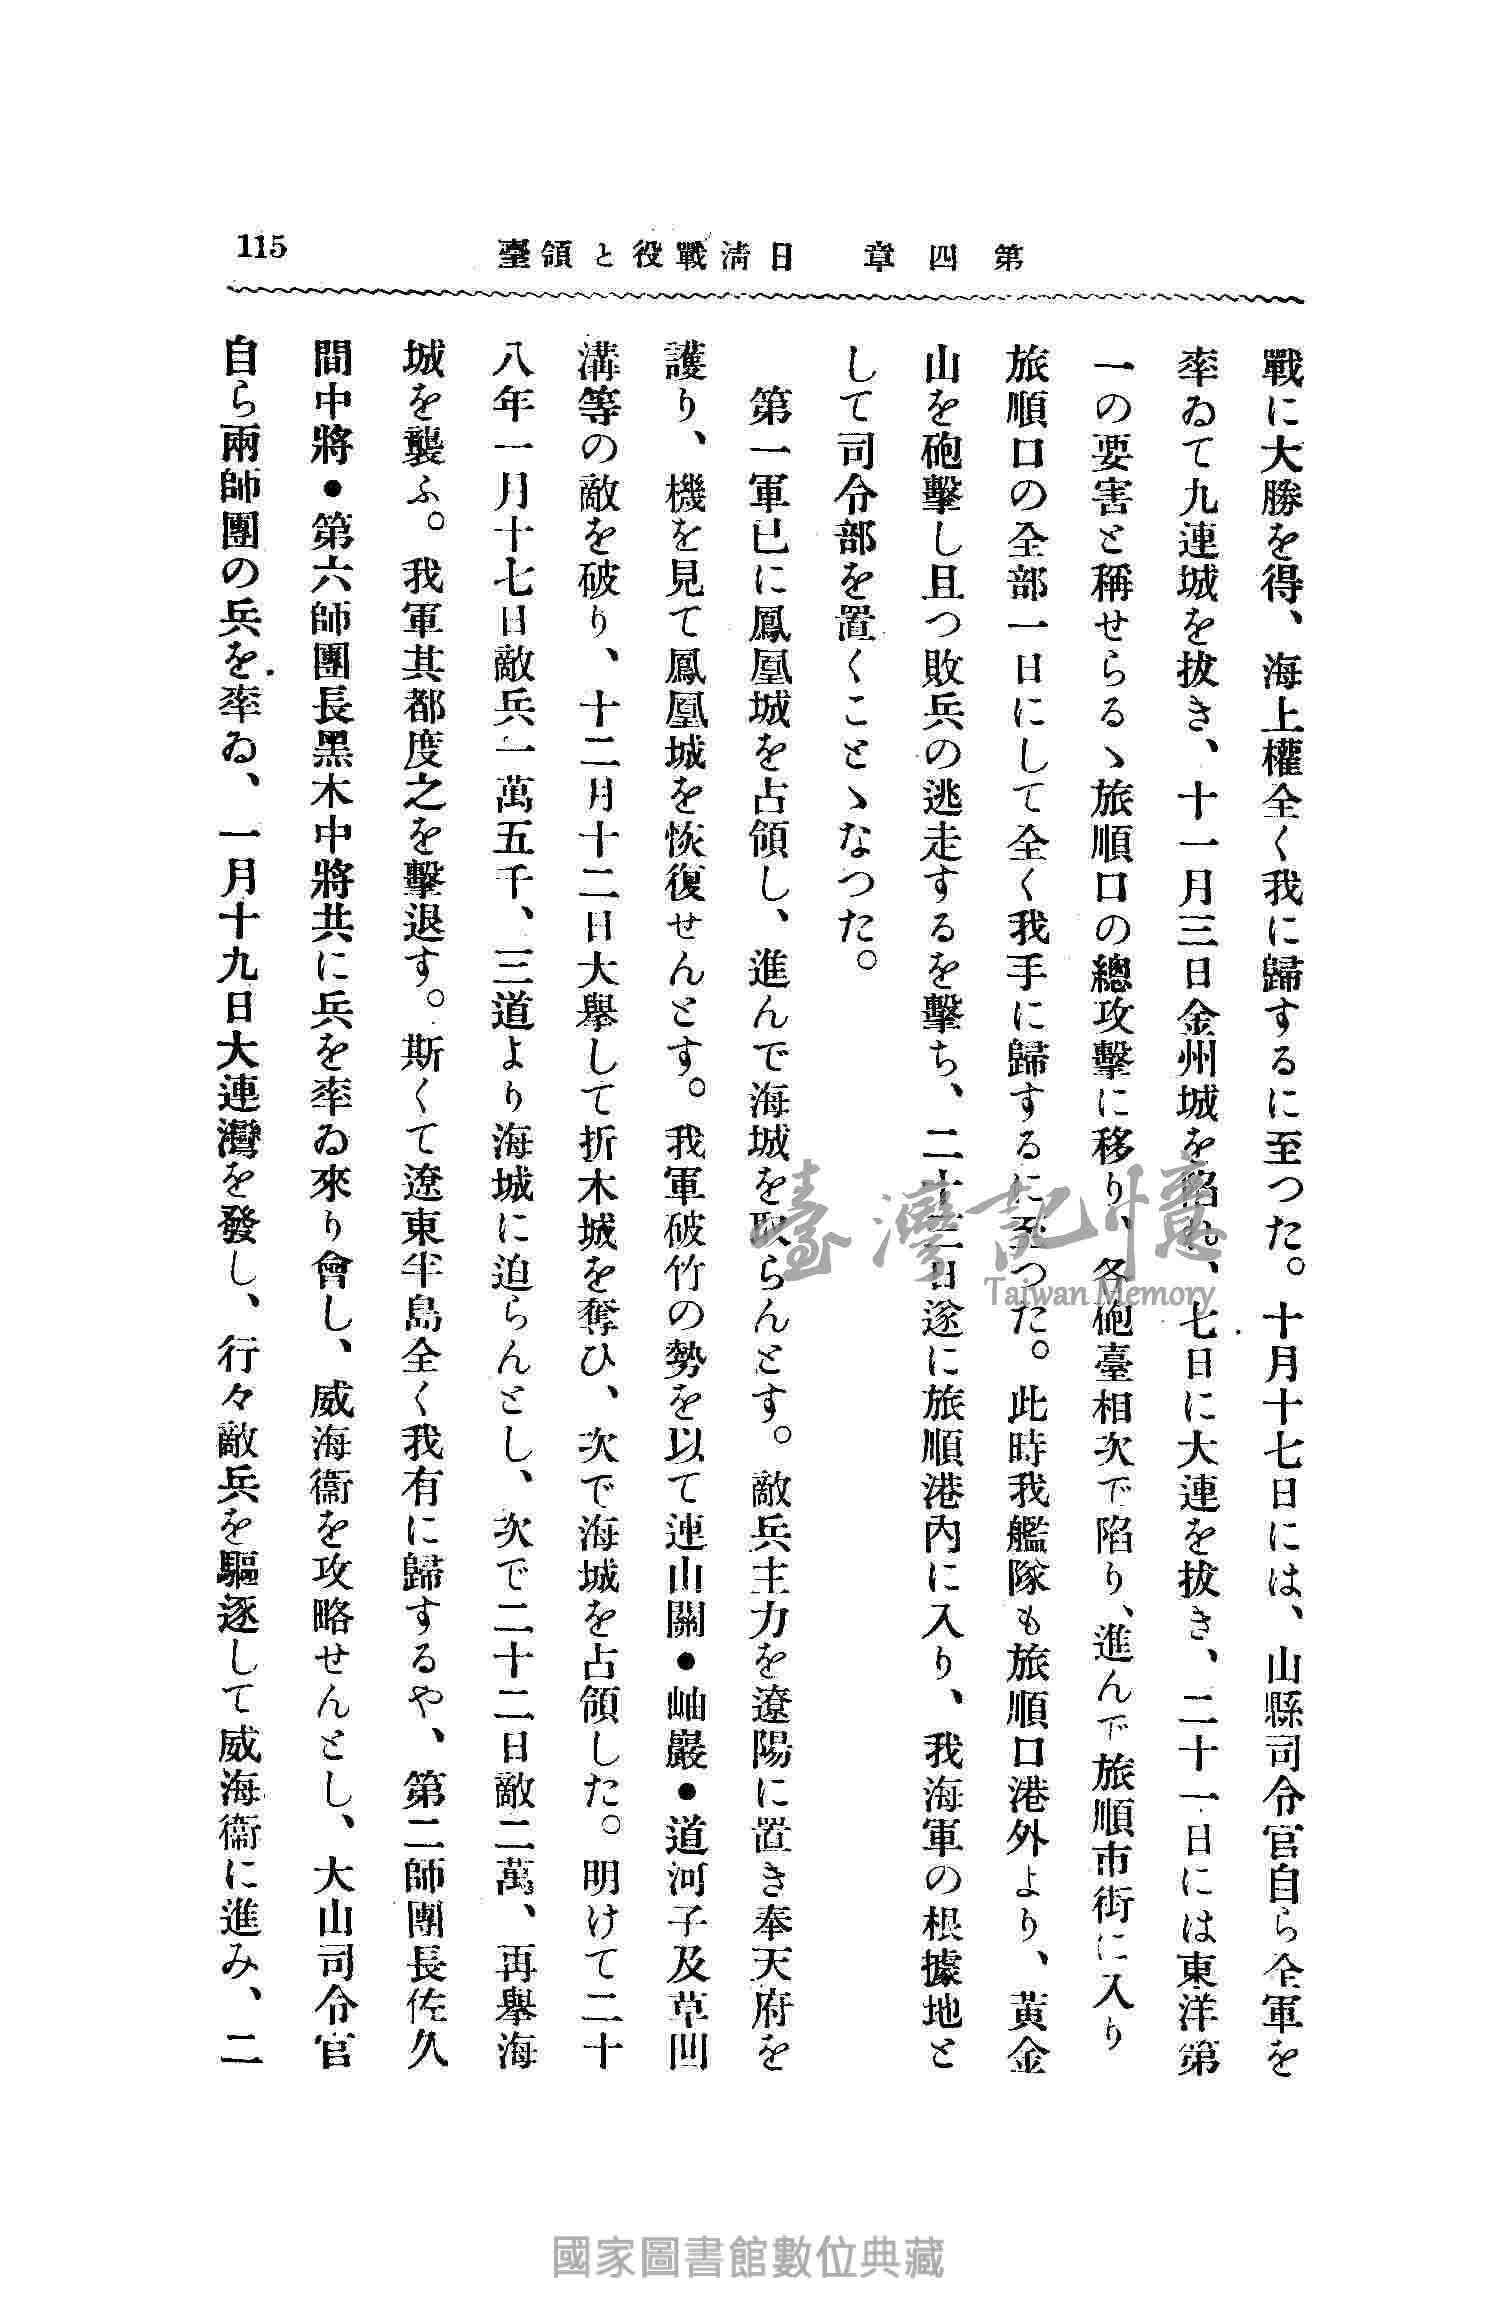 第四章 日淸戰役と領臺
115
戰に大勝を得、海上權全く我に歸するに至つた。十月十七日には、山縣司令官自ら全軍を
率ゐて九連城を拔き、十一月三日金州城を陷れ、七日に大連を拔き、二十一日には東洋第
一の要害と稱せらるゝ旅順口の總攻擊に移り、各砲臺相次で陷り、進んで旅順市街に入り
旅順口の全部一日にして全く我手に歸するに至つた。此時我艦隊も旅順口港外より、黃金
山を砲擊し且つ敗兵の逃走するを擊ち、二十二日遂に旅順港內に入り、我海軍の根據地と
して司令部を置くことゝなつた。
第一軍已に鳳凰城を占領し、進んで海城を取らんとす。敵兵主力を遼陽に置き奉天府を
護り、機を見て鳳凰城を恢復せんとす。我軍破竹の勢を以て連山關•岫巖•道河子及草凹
溝等の敵を破り、十二月十二日大擧して折木城を奪ひ、次で海城を占領した。明けて二十
八年一月十七日敵兵一萬五千、三道より海城に迫らんとし、次で二十二日敵二萬、再擧海
城を襲ふ。我軍其都度之を擊退す。斯くて遼東半島全く我有に歸するや、第二師團長佐久
間中將•第六師團長黑木中將共に兵を率ゐ來り會し、威海衞を攻略せんとし、大山司令官
自ら兩師團の兵を率ゐ、一月十九日大連灣を發し、行々敵兵を驅逐して威海衞に進み、二
臺灣記憶
Taiwan Memory
國家圖書館數位典藏